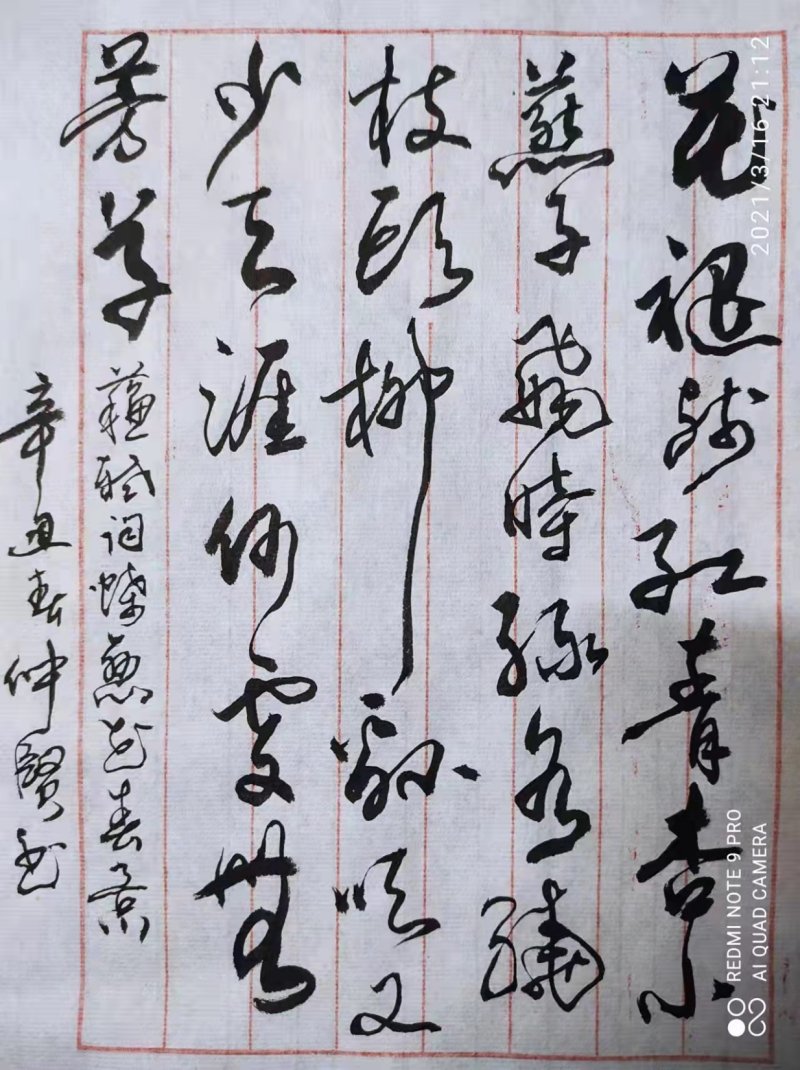 花褪残红青杏小
燕子飛時緑繞
枝頭柳吹又
少天涯何處無
芳草
蘇軾詞蝶戀花春景
辛丑春仲賢书
2021/3/16 21:12
REDMI NOTE 9 PRO
AI QUAD CAMERA